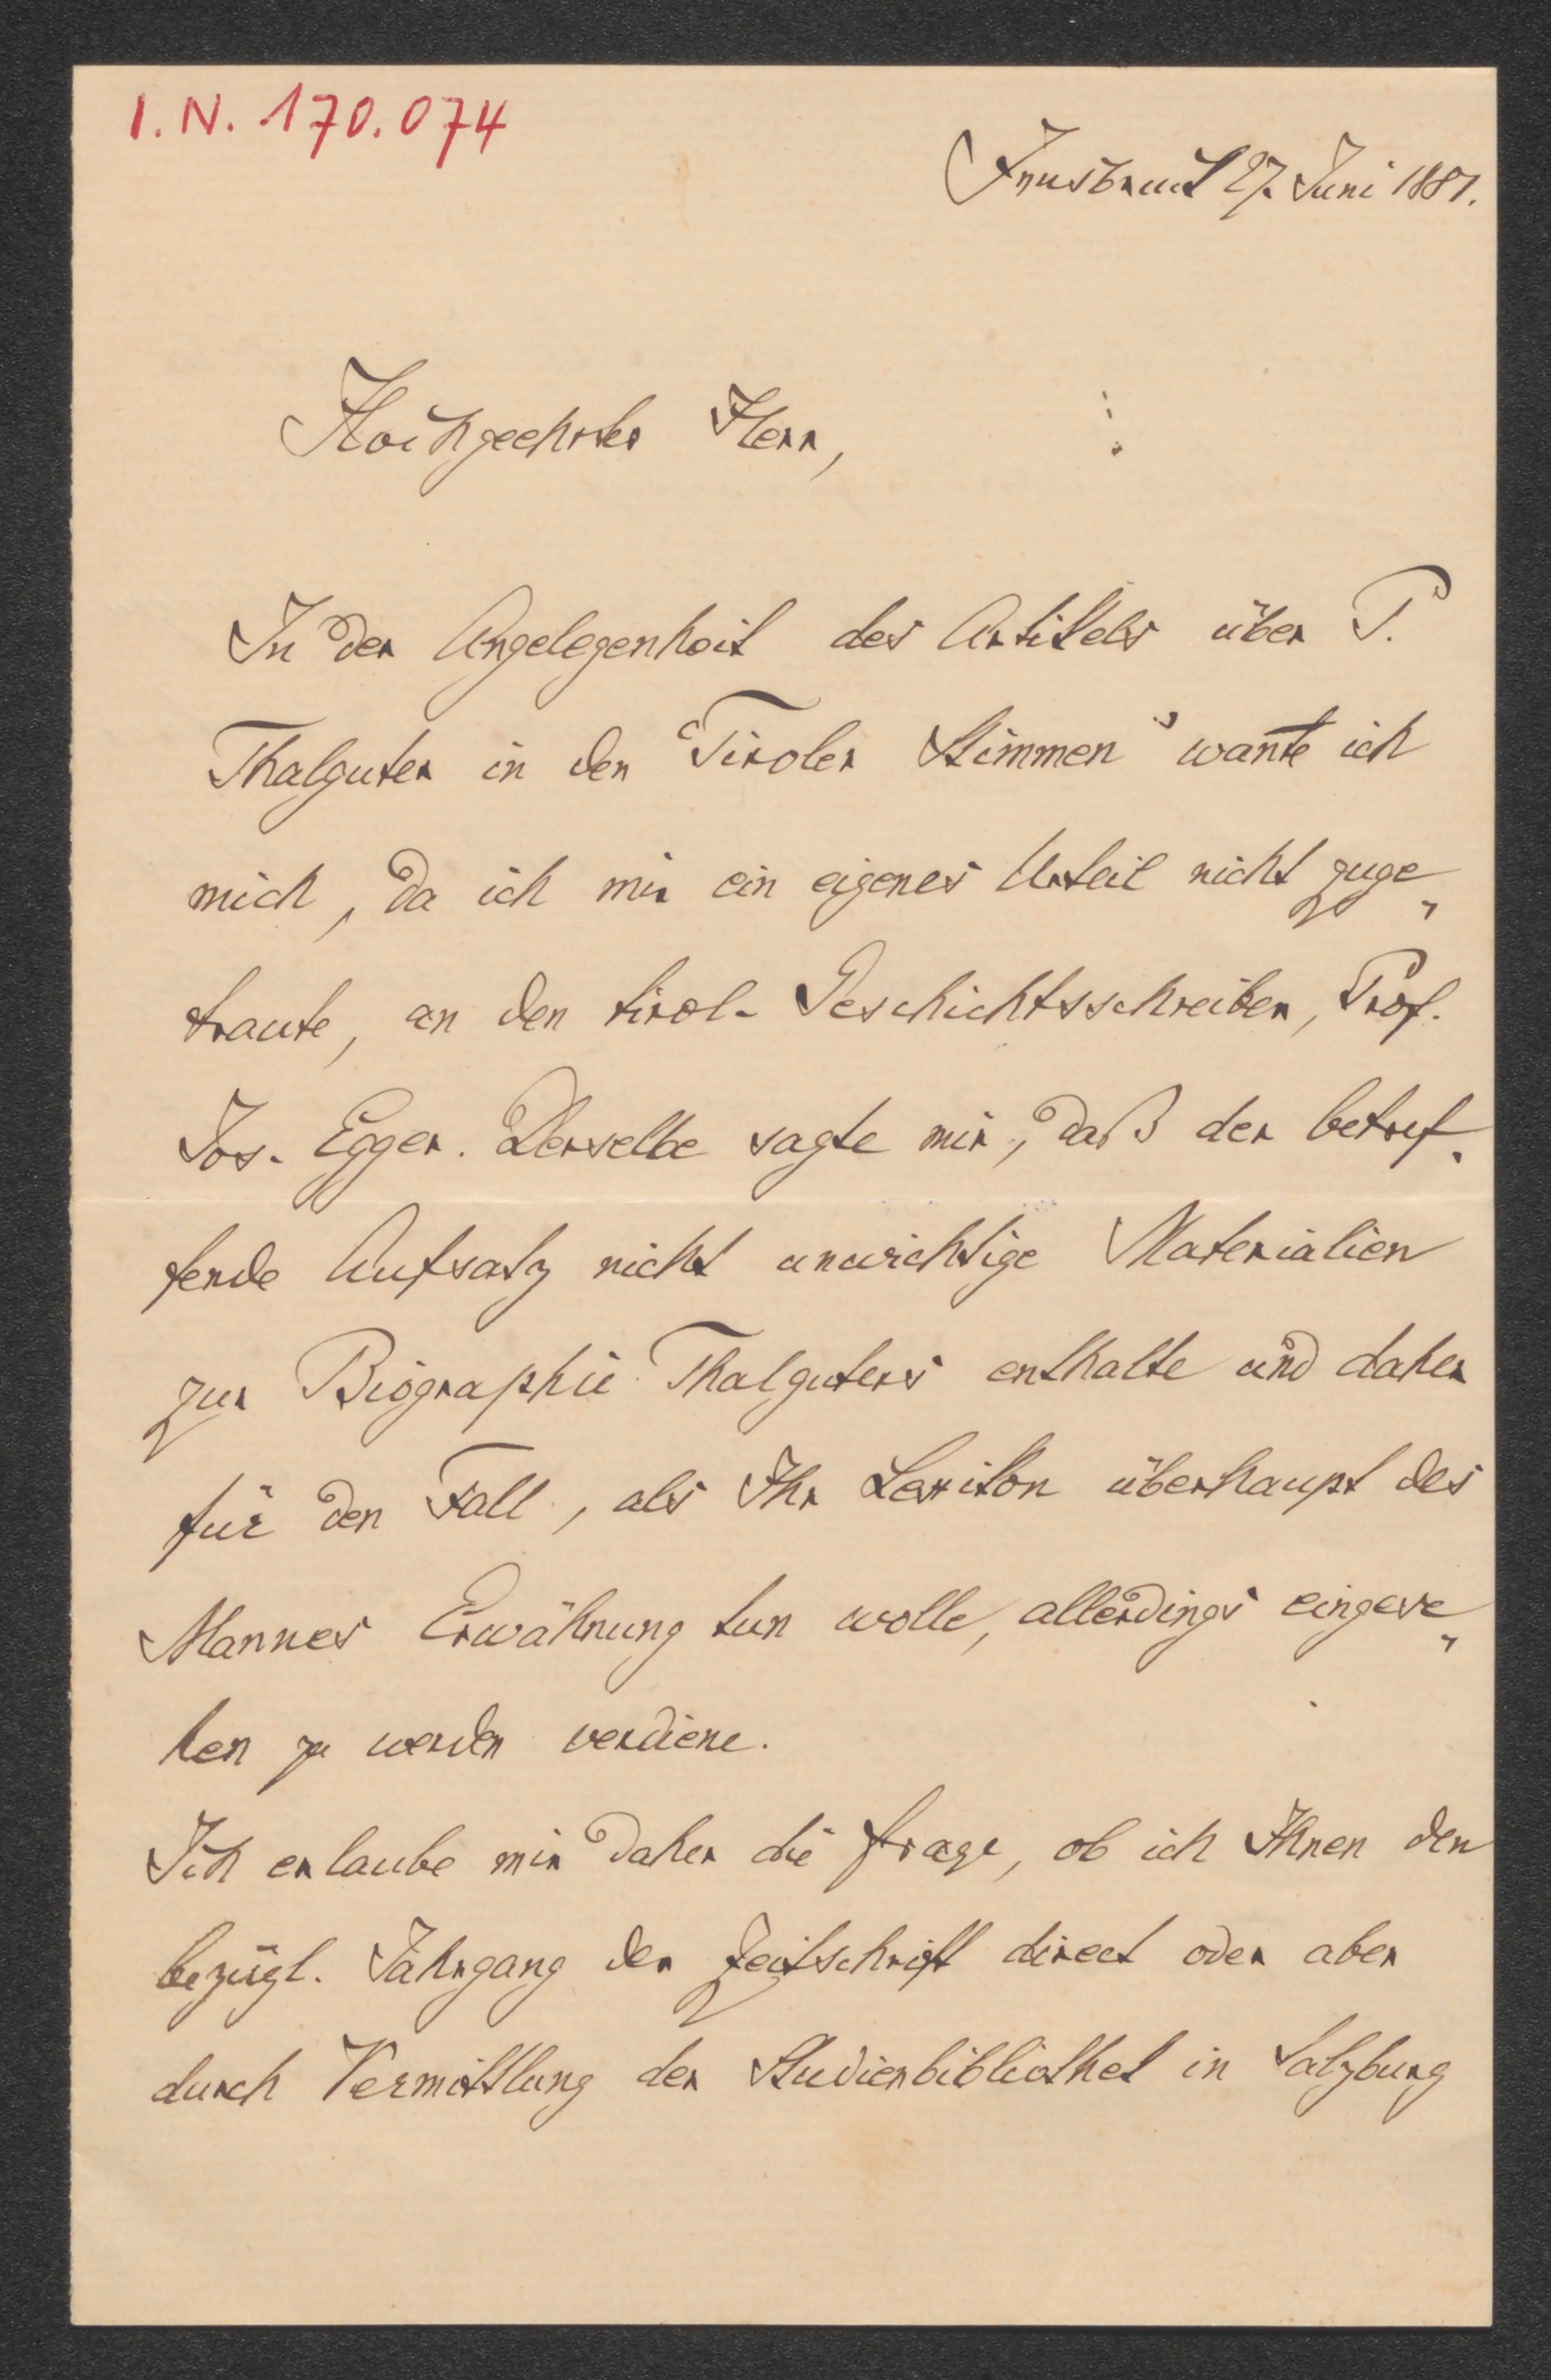 I.N. 170.074
Innsbruck 27. Juni 1881.
Hochgeehrter Herr,
In der Angelegenheit des Artikels über P.
Thalguter in den "Tiroler Stimmen" wan̅te ich
mich, da ich mir ein eigenes Urteil nicht zuge„
traute, an den tirol. Geschichtsschreiber, Prof.
Jos. Egger. Derselbe sagte mir, daß der betref„
fende Aufsatz nicht unwichtige Materialien
zur Biographie Thalguters enthalte und daher
für den Fall, als Ihr Lexikon überhaupt des
Mannes Erwähnung tun wolle, allerdings eingese„
hen zu werden verdiene.
Ich erlaube mir daher die Frage, ob ich Ihnen den
bezügl. Jahrgang der Zeitschrift direct oder aber
durch Vermittlung der Studienbibliothek in Salzburg